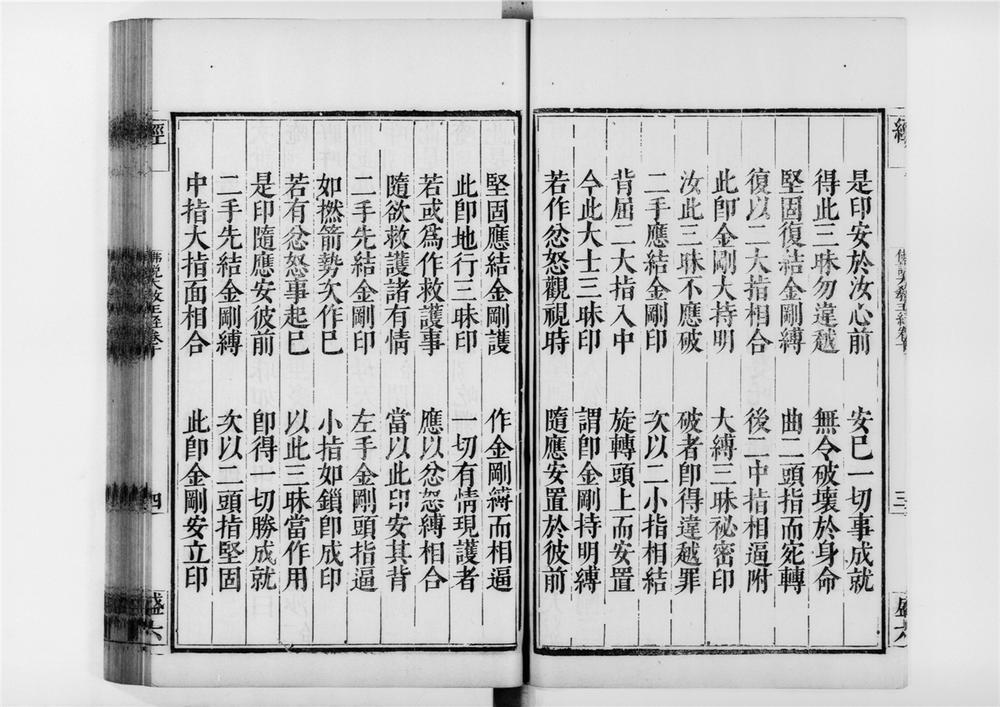 是印安於汝心前　安已一切事成就
得此三昧勿違越　無令破壞於身命
堅固復結金剛縛　曲二頭指而宛轉
復以二大指相合　後二中指相逼附
此即金剛大持明　大縛三昧祕密印
汝此三昧不應破　破者即得違越罪
二手應結金剛印　次以二小指相結
背屈二大指入中　旋轉頭上而安置
今此大士三昧印　謂即金剛持明縛
若作忿怒觀視時　隨應安置於彼前
經　三　盛六
堅固應結金剛護　作金剛縛而相逼
此即地行三昧印　一切有情現護者
若或為作救護事　應以忿怒縛相合
隨欲救護諸有情　當以此印安其背
二手先結金剛印　左手金剛頭指逼
如撚箭勢次作已　小指如鎖即成印
若有忿怒事起已　以此三昧當作用
是印隨應安彼前　即得一切勝成就
二手先結金剛縛　次以二頭指堅固
中指大指面相合　此即金剛安立印
經　四　盛六